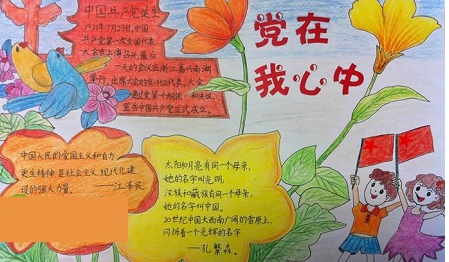 党在
我心中
中国共产党诞生
1921年7月23日,中国
共产党第一次全国代表
大会在上海召开,最后
一天的会议在浙江嘉兴南湖
举行。出席大会的有13位代表。大会
宣告中国共产党正式成立。
中国人民的爱国主义和自力
更生精神是社会主义现代化建
设的强大力量。
——江泽民
太阳和月是有同一个母亲,
她的名字叫光明。
汉族和藏族有同一个母亲,
她的名字叫中国。
20世纪中国大西南广阔的雪原上,
闪烁着一个光辉的名字
——孔繁森。